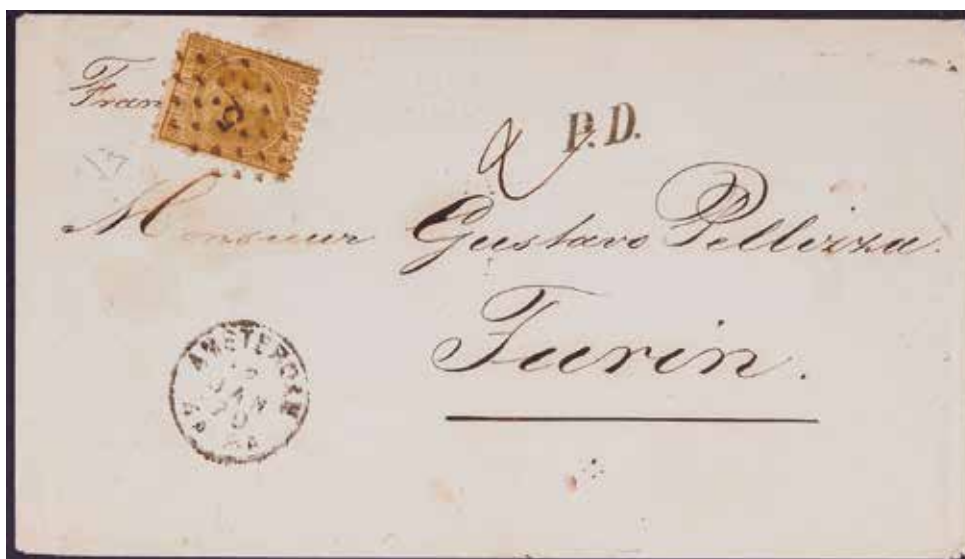 P.D.
Monsieur Gustavo Pellizza.
Turin.
AMSTERDAM
JAN
70